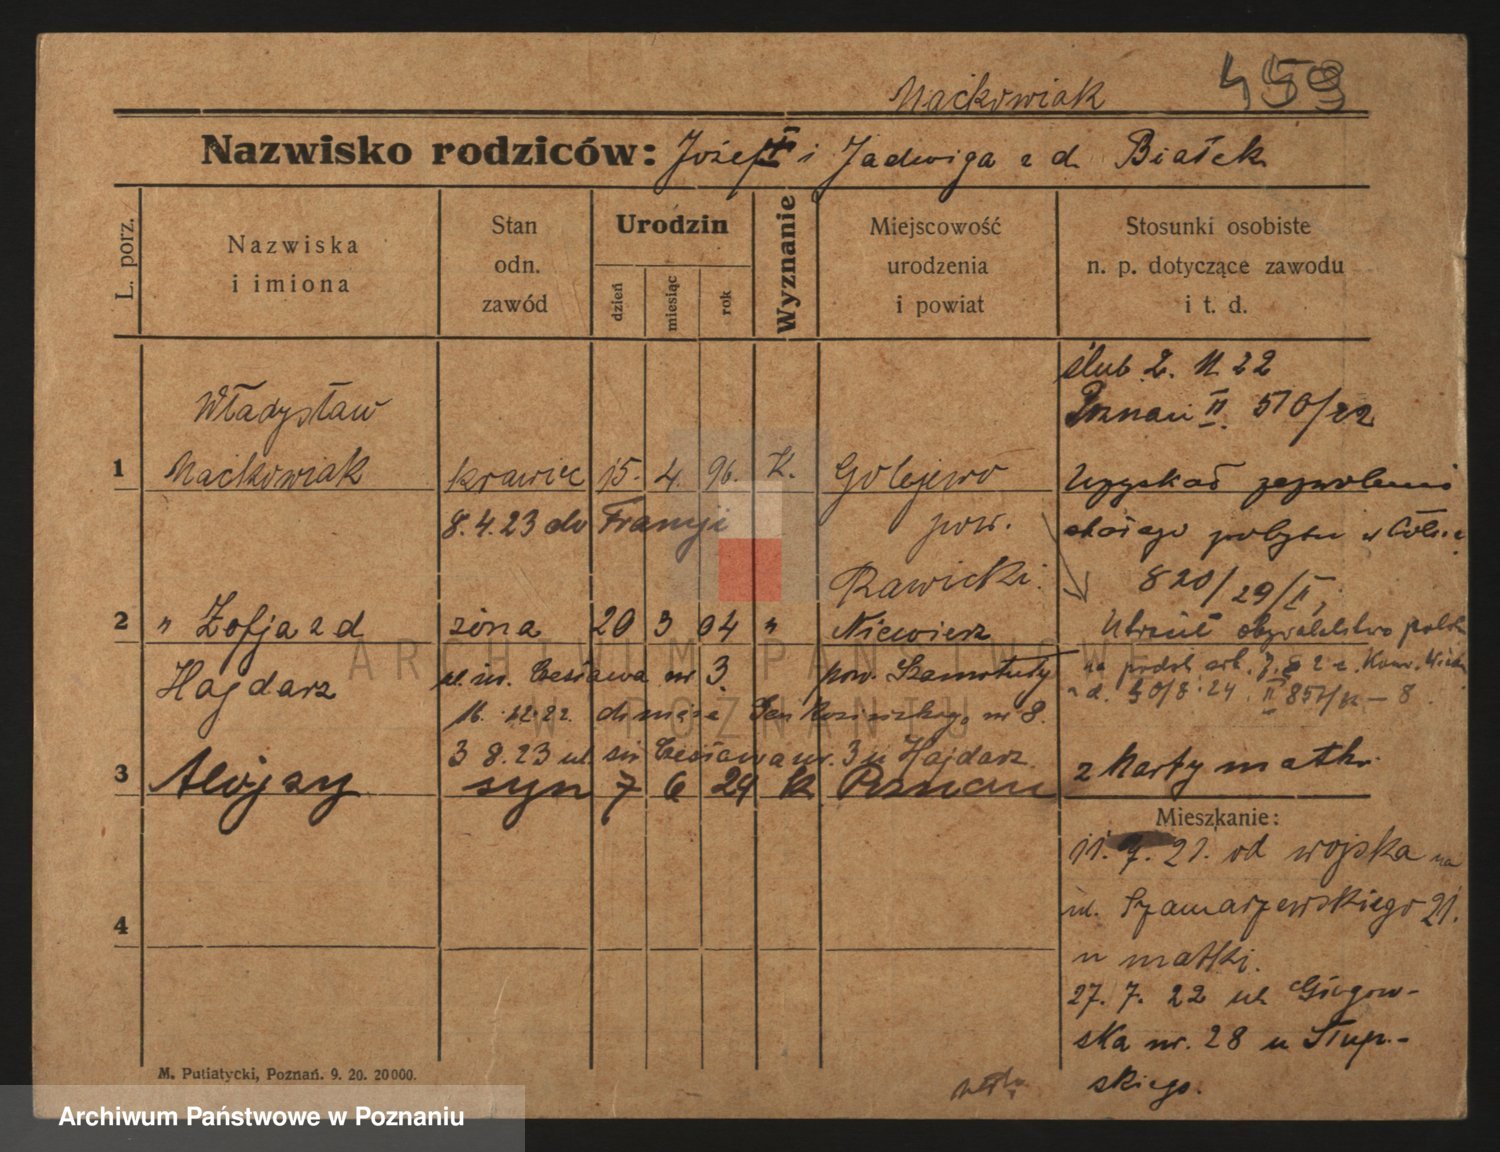 Maćkowiak 459
Nazwisko rodziców: Józef † i Jadwiga z d. Białek
L. porz.
Nazwiska
i imiona
Stan
odn.
zawód
Urodzin
dzień
miesiąc
rok
Wyznanie
Miejscowość
urodzenia
i powiat
Stosunki osobiste
n. p. dotyczące zawodu
i t. d.
ślub 2. 11. 22
Poznań II. 510/22
Władysław
1 Maćkowiak krawiec 15. 4. 96. K. Golejewo
pow.
Rawicki.
8.4.23 do Francji
Uzyskał zezwolenie
stałego pobytu w
820/29/II,
2 " Zofja z d żona 20 3 04 " Niewierz
Hajdarz
pow. Szamotuły
Utracił obywatelstwo polsk
na podst. art.
ul. św. Czesława nr 3.
16. 12. 22. do męża nr 8.
3 8.23 ul. św Czesława nr. 3 u Hajdarz
3 Alojzy syn 7 6 24 K Poznań
z karty matki.
Mieszkanie:
11. 7. 21. od wojska na
ul. Szamarzewskiego 21.
u matki.
27. 7. 22 ul. Głogow-
ska nr. 28 u Słup.-
skiego.
4
M. Putiatycki, Poznań. 9. 20. 20000.
ARCHIWUM PAŃSTWOWE
W POZNANIU
Archiwum Państwowe w Poznaniu